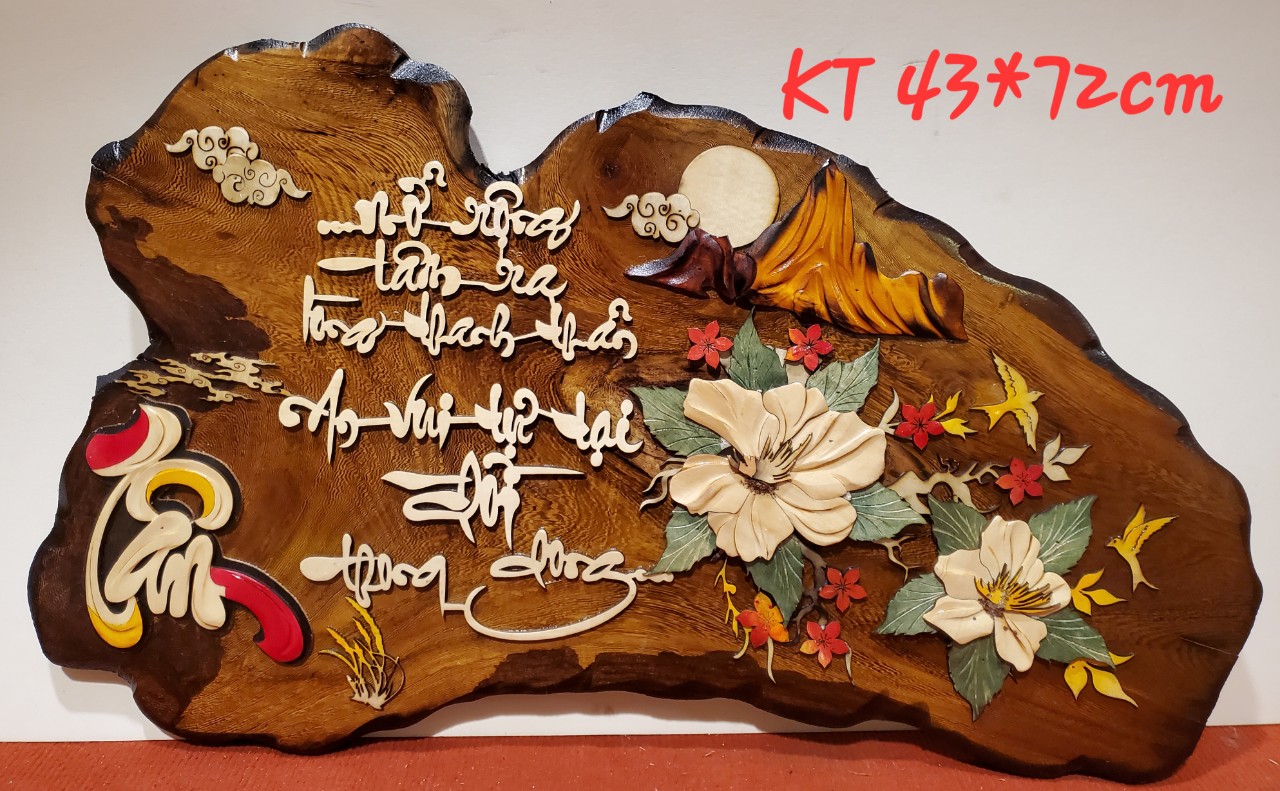 ...mở rộng
tâm ra
thanh thản
An vui tự tại
đời
thong dong...
Tâm
KT 43*72cm